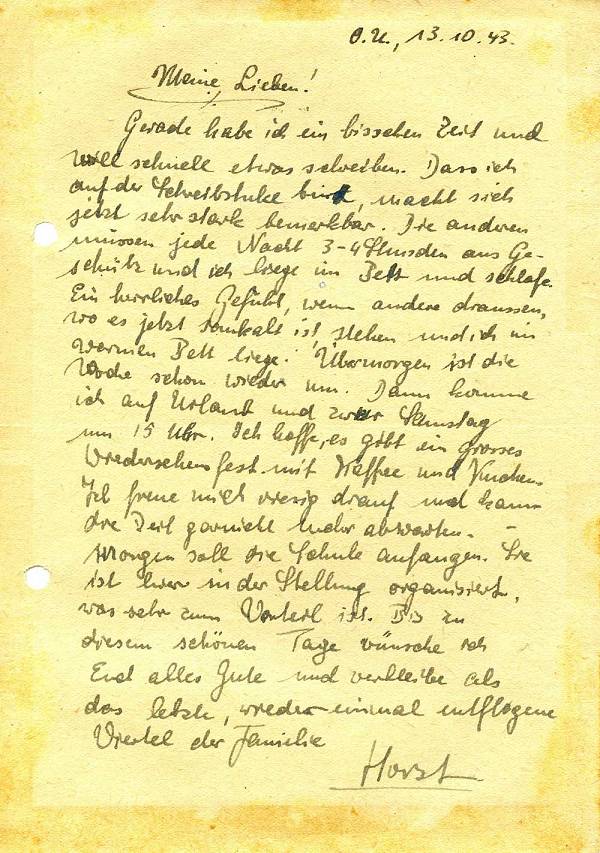 O.U., 13.10.43.
Meine Lieben!
Gerade habe ich ein bisschen Zeit und
will schnell etwas schreiben. Dass ich
auf der Schreibstube bin, macht sich
jetzt sehr stark bemerkbar. Die anderen
müssen jede Nacht 3-4 Stunden ans Ge-
schütz und ich liege im Bett und schlafe.
Ein herrliches Gefühl, wenn andere draussen,
wo es jetzt saukalt ist, stehen und ich im
warmen Bett liege. Übermorgen ist die
Woche schon wieder um. Dann komme
ich auf Urlaub und zwar Samstag
um 15 Uhr. Ich hoffe, es gibt ein grosses
Wiedersehensfest mit Kaffee und Kuchen.
Ich freue mich riesig drauf und kann
die Zeit garnicht mehr abwarten. -
Morgen soll die Schule anfangen. Sie
ist hier in der Stellung organisiert,
was sehr zum Vorteil ist. Bis zu
diesem schönen Tage wünsche ich
Euch alles Gute und verbleibe als
das letzte, wieder einmal entflogene
Viertel der Familie
Horst